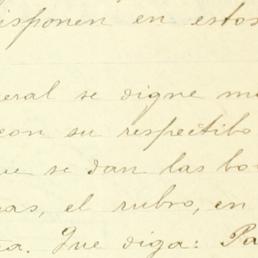 disponen en estos
neral se digne m
con su respectibo
ue se dan las bo
as, el rubro, en
a. Que diga: Pa